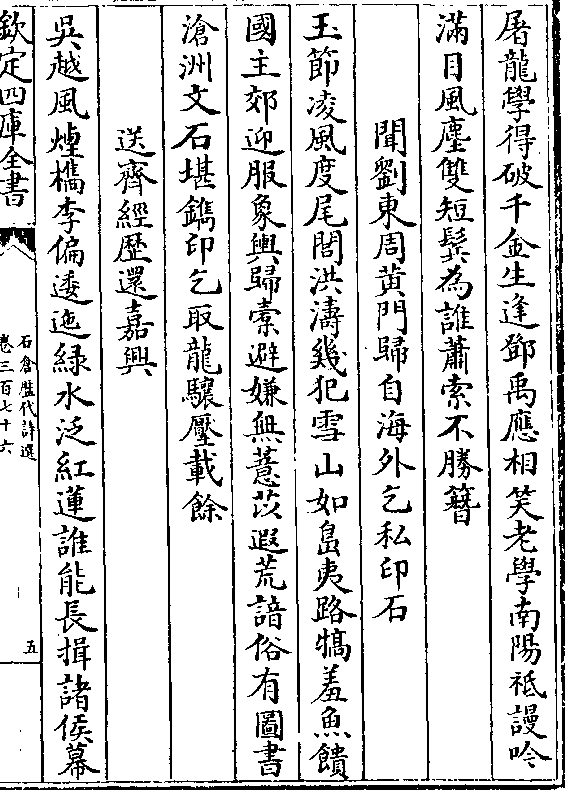 屠龍學得破千金生逢鄧禹應相笑老學南陽祗謾吟
滿目風塵雙短鬂為誰蕭索不勝簪
聞劉東周黄門歸自海外乞私印石
玉節凌風度尾閭洪濤幾犯雪山如島夷路犒羞魚饋
國主郊迎服象輿歸槖避嫌無薏苡遐荒諳俗有圖書
滄洲文石堪鐫印乞取龍驤壓載餘
送齊經歴還嘉興
吳越風煙檇李偏逶迤緑水泛紅蓮誰能長揖諸侯幕
欽定四庫全書
石倉歴代詩選
卷三百七十六
五